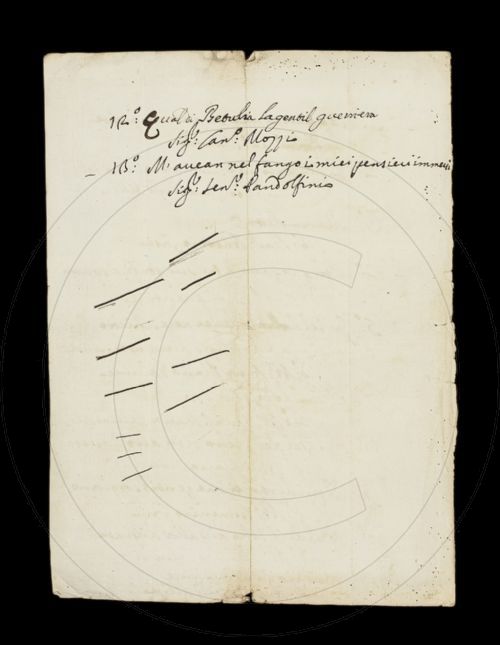 12º: Qual di Betulia la gentil guerriera
Sigr: Canº: Mozzi
13º: M'avean nel fango i miei pensieri immersi
Sigr: Senº: Pandolfini